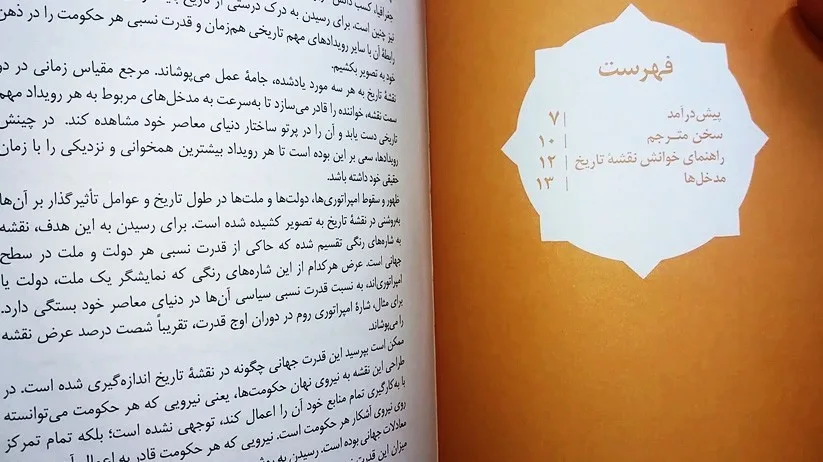 فهرست
پیش‌درآمد | ۷
سخن مترجم | ۱۰
راهنمای خوانش نقشهٔ تاریخ | ۱۲
مدخل‌ها | ۱۳
جغرافیا، کسب دانش
نیز چنین است. برای رسیدن به درک درستی از تاریخ
رابطهٔ آن با سایر رویدادهای مهم تاریخی هم‌زمان و قدرت نسبی هر حکومت را در ذهن
خود به تصویر بکشیم.
نقشهٔ تاریخ به هر سه مورد یادشده، جامهٔ عمل می‌پوشاند. مرجع مقیاس زمانی در دو
سمت نقشه، خواننده را قادر می‌سازد تا به‌سرعت به مدخل‌های مربوط به هر رویداد مهم
تاریخی دست یابد و آن را در پرتو ساختار دنیای معاصر خود مشاهده کند. در چینش
رویدادها، سعی بر این بوده است تا هر رویداد بیشترین همخوانی و نزدیکی را با زمان
حقیقی خود داشته باشد.
ظهور و سقوط امپراتوری‌ها، دولت‌ها و ملت‌ها در طول تاریخ و عوامل تأثیرگذار بر آن‌ها
به‌روشنی در نقشهٔ تاریخ به تصویر کشیده شده است. برای رسیدن به این هدف، نقشه
به شاره‌های رنگی تقسیم شده که حاکی از قدرت نسبی هر دولت و ملت در سطح
جهانی است. عرض هرکدام از این شاره‌های رنگی که نمایشگر یک ملت، دولت یا
امپراتوری‌اند، به نسبت قدرت نسبی سیاسی آن‌ها در دنیای معاصر خود بستگی دارد.
برای مثال، شارهٔ امپراتوری روم در دوران اوج قدرت، تقریباً شصت درصد عرض نقشه
را می‌پوشاند.
ممکن است بپرسید این قدرت جهانی چگونه در نقشهٔ تاریخ اندازه‌گیری شده است. در
طراحی این نقشه به نیروی نهان حکومت‌ها، یعنی نیرویی که هر حکومت می‌توانسته
با به‌کارگیری تمام منابع خود آن را اعمال کند، توجهی نشده است؛ بلکه تمام تمرکز
روی نیروی آشکار هر حکومت است. نیرویی که هر حکومت قادر به اعمال آن
معادلات جهانی بوده است. رسیدن به
میزان این قدرت